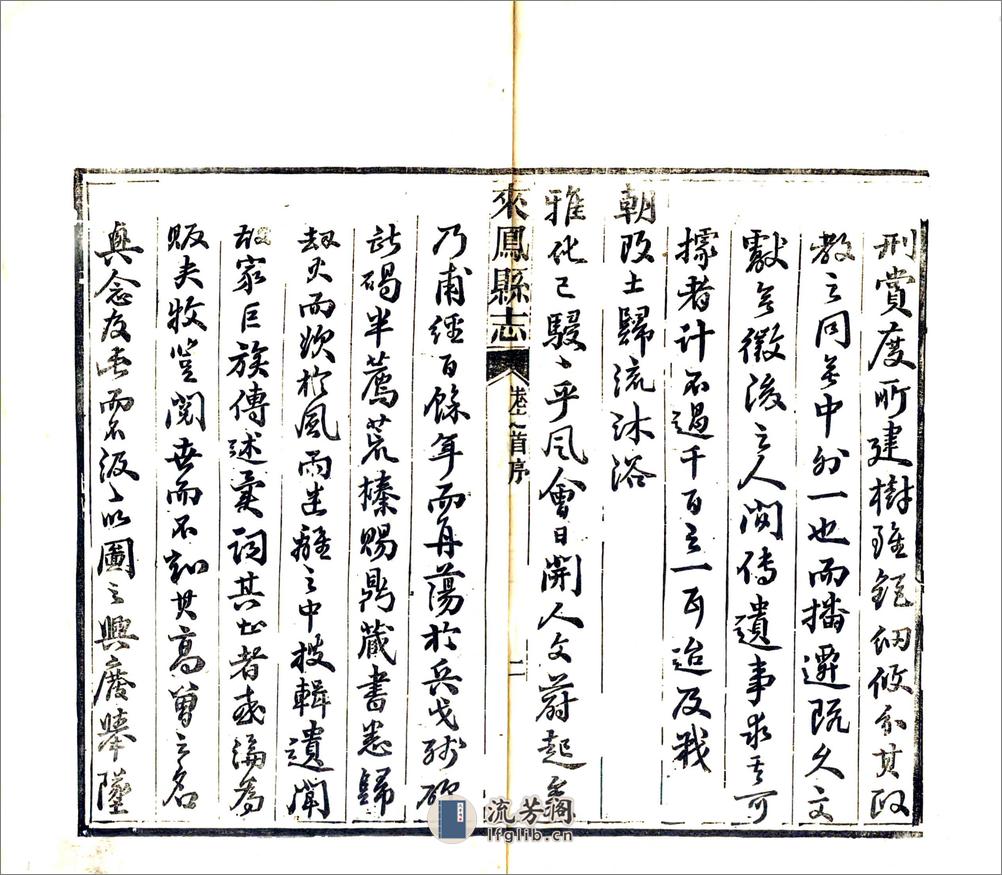 刑賞度所建樹雖鉅細攸分其政
教之同無中外一也而播遷既久文
獻無徵後之人閒傳遺事求其可
據者計不過千百之一耳迨及我
朝改土歸流沐浴
雅化已駸〻乎風會日開人文蔚起
來鳳縣志
卷之首序
二
乃甫經百餘年而再蕩於兵戈殘碑
斷碣半薦荒榛賜鼎藏書悉歸
劫火而欲於風雨 離之中搜輯遺聞
故家巨族傳述異詞其 者或淪為
販夫牧豎閱世而不知其高曾之名
與念及此而不汲〻以圖之興廢舉墜
流芳阁
lfglib.cn